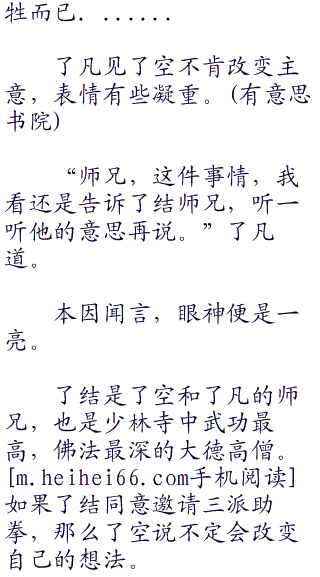 牲而已．......
了凡见了空不肯改变主
意，表情有些凝重。(有意思
书院)
“师兄，这件事情，我
看还是告诉了结师兄，听一
听他的意思再说。”了凡
道。
本因闻言，眼神便是一
亮。
了结是了空和了凡的师
兄，也是少林寺中武功最
高，佛法最深的大德高僧。
[m.heihei66.com手机阅读]
如果了结同意邀请三派助
拳，那么了空说不定会改变
自己的想法。